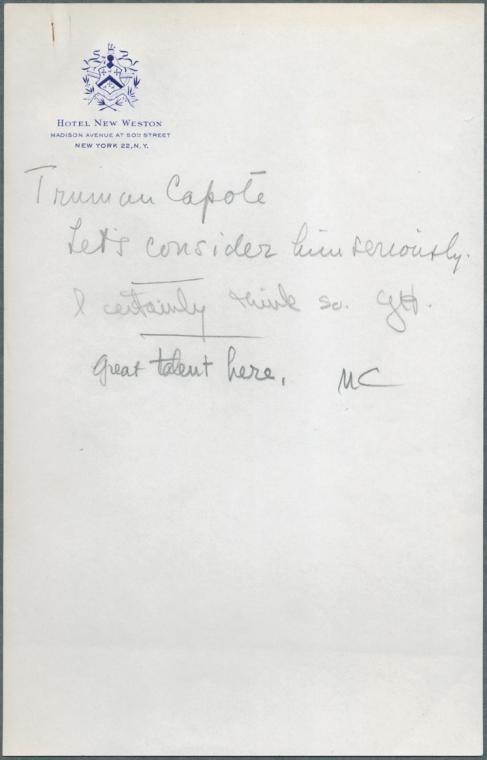 HOTEL NEW WESTON
MADISON AVENUE AT 50TH STREET
NEW YORK 22, N.Y.
Truman Capote
Let's consider him seriously.
I certainly think so. GH.
Great talent here. MC